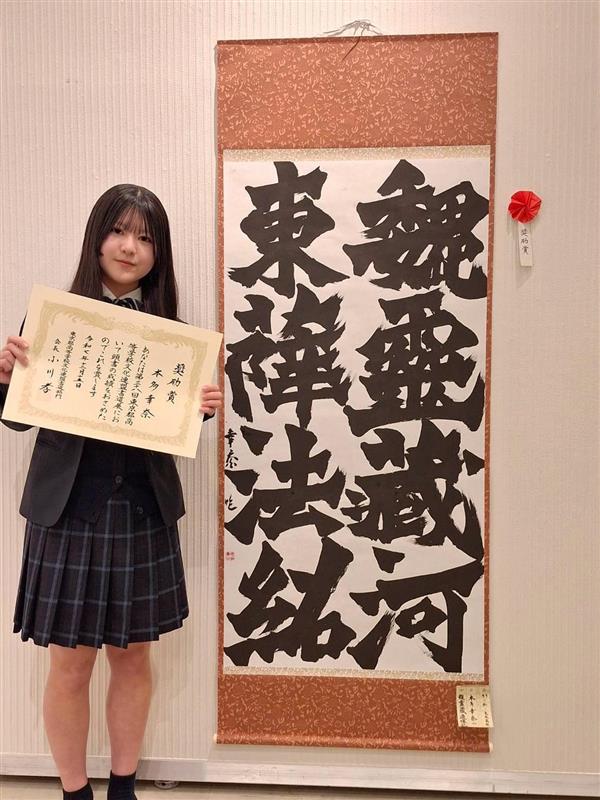 魏靈藏河
東薛法紹
幸奈
奨励賞
本多幸奈
あなたは第三八回東京都高
等学校文化連盟書道展にお
いて頭書の成績をおさめた
のでこれを賞します
令和七年十二月五日
東京都高等学校文化連盟書道部門
会長 小川 孝
奨励賞
本多幸奈